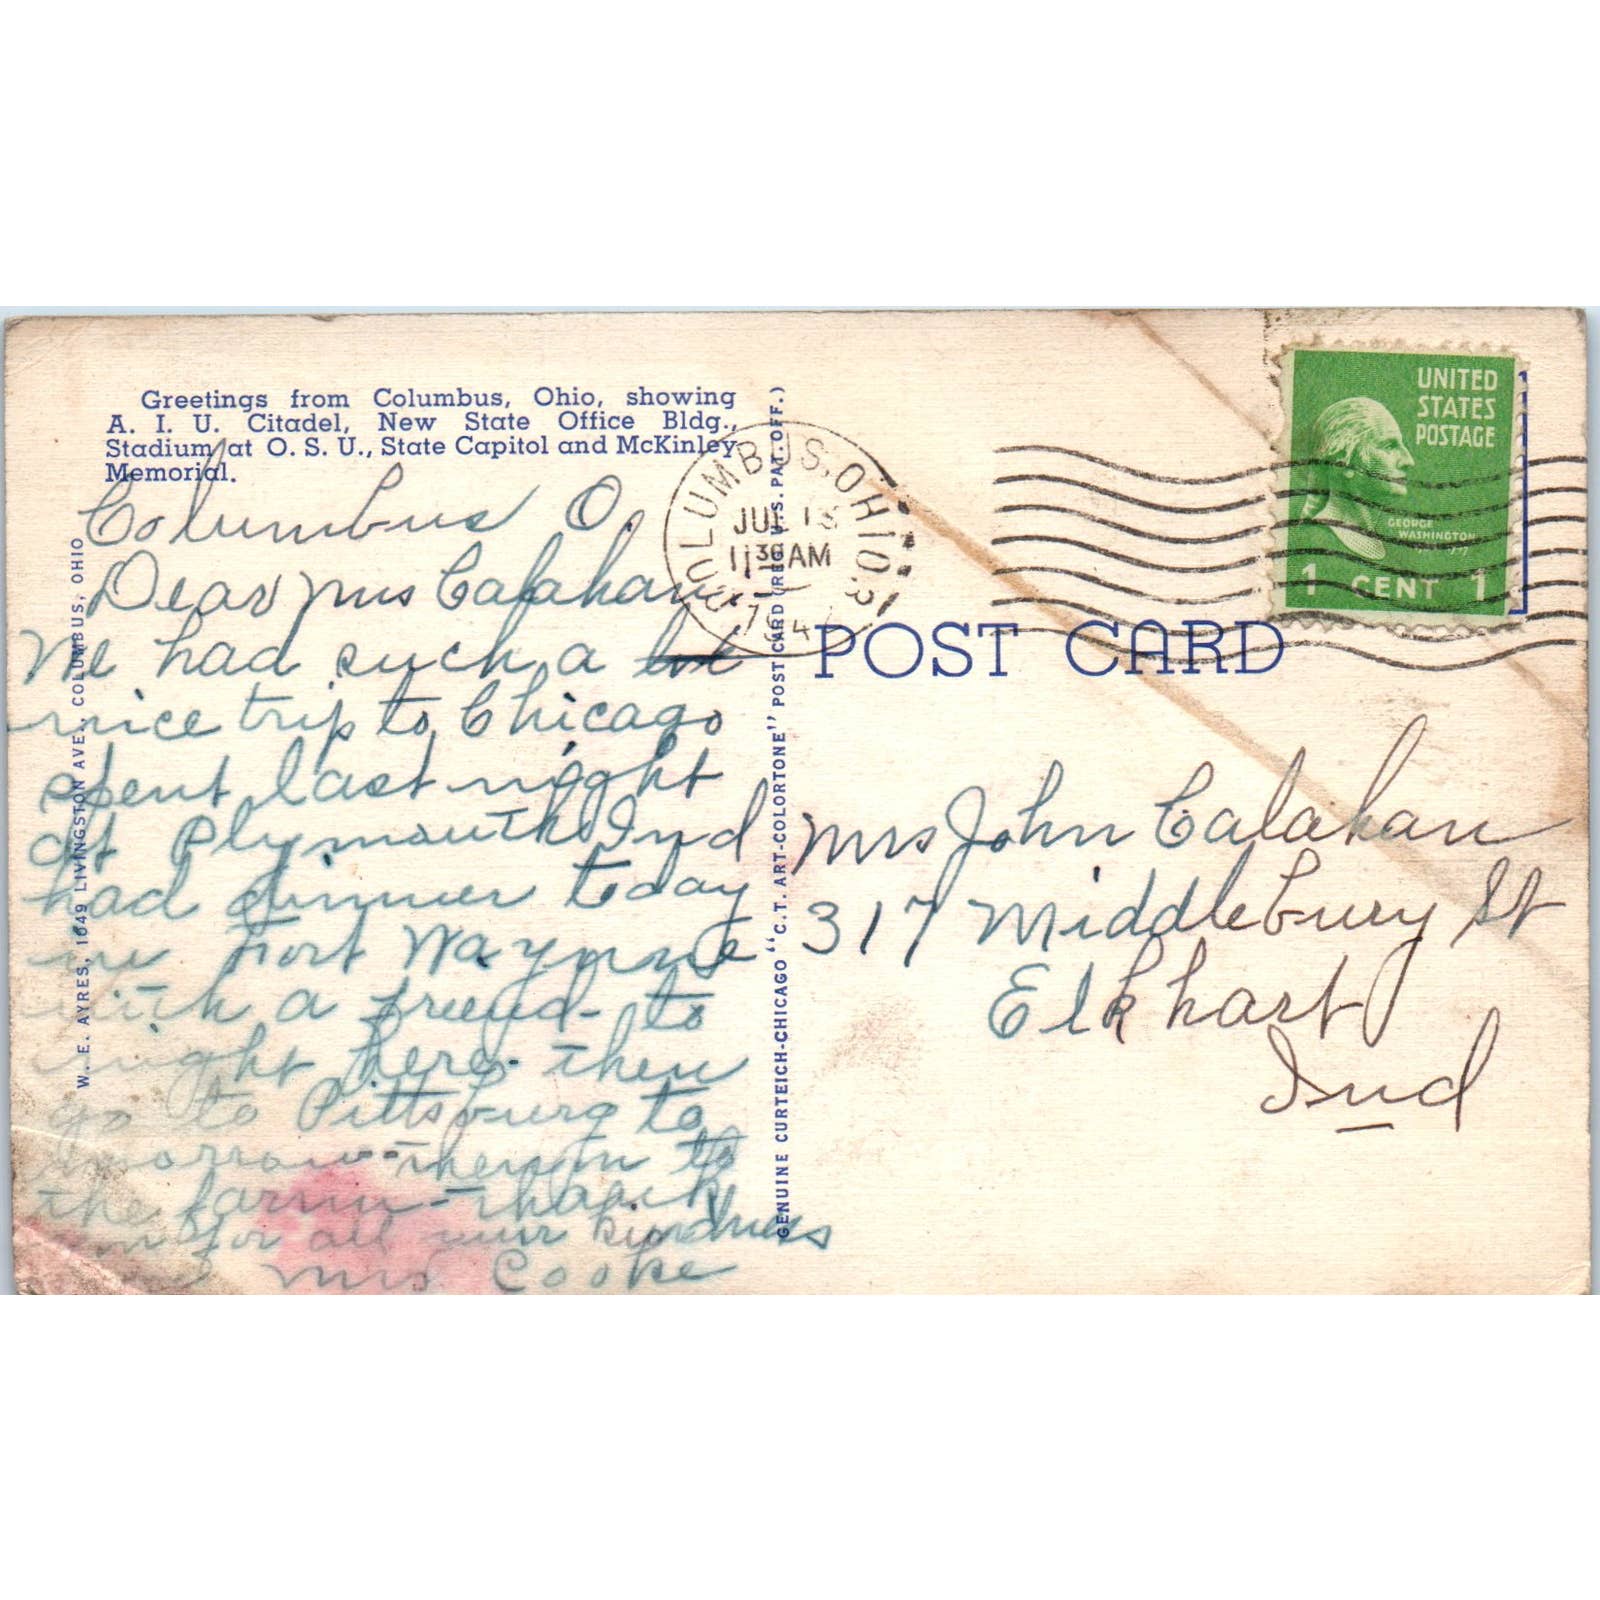 Greetings from Columbus, Ohio, showing
A. I. U. Citadel, New State Office Bldg.,
Stadium at O. S. U., State Capitol and McKinley
Memorial.
Columbus O.
Dear Mrs Calahan
We had such a
nice trip to Chicago
spent last night
at Plymouth Ind
had dinner today
in Fort Wayne
with a friend - to
night here. then
go to Pittsburg to
morrow - then on to
the farm - thank
you for all your kindness
Mrs Cooke
W. E. AYRES, 1049 LIVINGSTON AVE., COLUMBUS, OHIO
GENUINE CURTEICH-CHICAGO "C. T. ART-COLORTONE" POST CARD (REG. U.S. PAT. OFF.)
COLUMBUS, OHIO
JUL 13
11 30 AM
194
UNITED
STATES
POSTAGE
GEORGE
WASHINGTON
1 CENT 1
POST CARD
Mrs John Calahan
317 Middlebury St
Elkhart
Ind